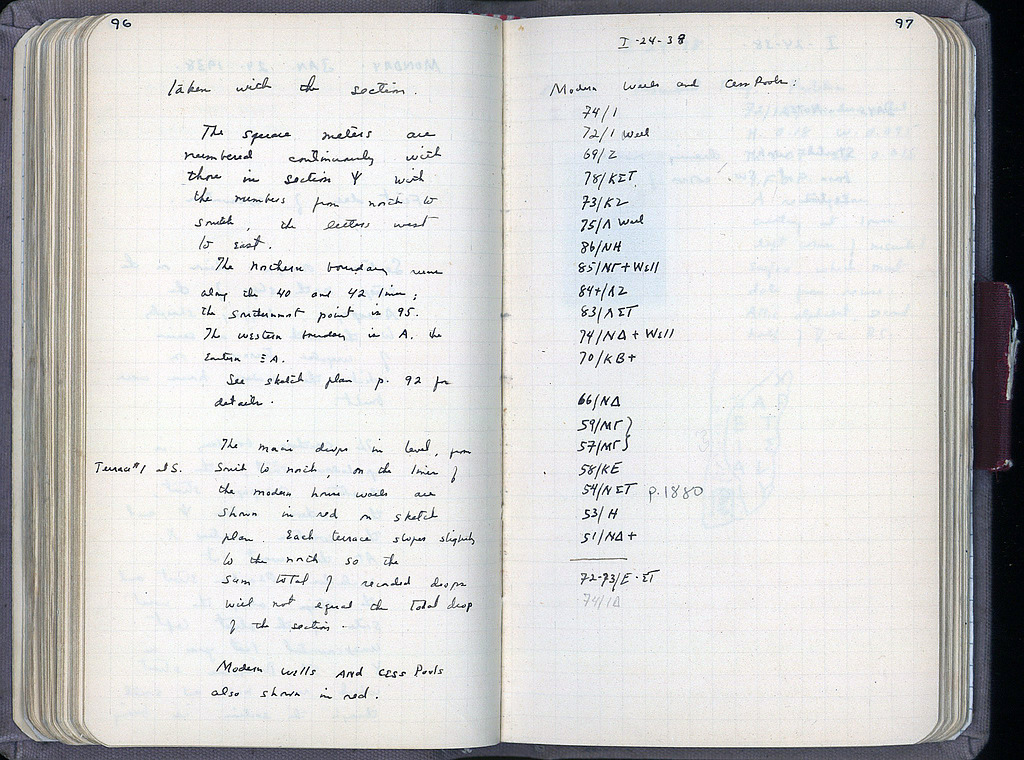 96
taken with the section.
The square meters are
numbered continuously with
those in section Ψ with
the numbers from north to
south, the letters west
to east.
The northern boundary runs
along the 40 and 42 lines;
the southernmost point is 95.
The western boundary is A. the
Eastern ΞA.
See sketch plan p. 92 for
details.
The main drops in level, from
Terrace #1 at S. South to north, on the lines of
the modern house walls are
shown in red on sketch
plan. Each terrace slopes slightly
to the north so the
sum total of recorded drops
will not equal the total drop
of the section.
Modern wells AND CESS Pools
also shown in red.
97
I-24-38
Modern wells and Cess Pools:
74/I
72/I Well
69/Z
78/KΣT
73/KZ
75/Λ Well
86/NH
85/NΓ + Well
84+/ΛZ
83/ΛΣT
74/NΔ + Well
70/KB+
66/NΔ
59/MΓ}
57/MΓ}
58/KE
54/NΣT p.1880
53/H
51/NΔ +
72-73/E-ΣT
74/IΔ